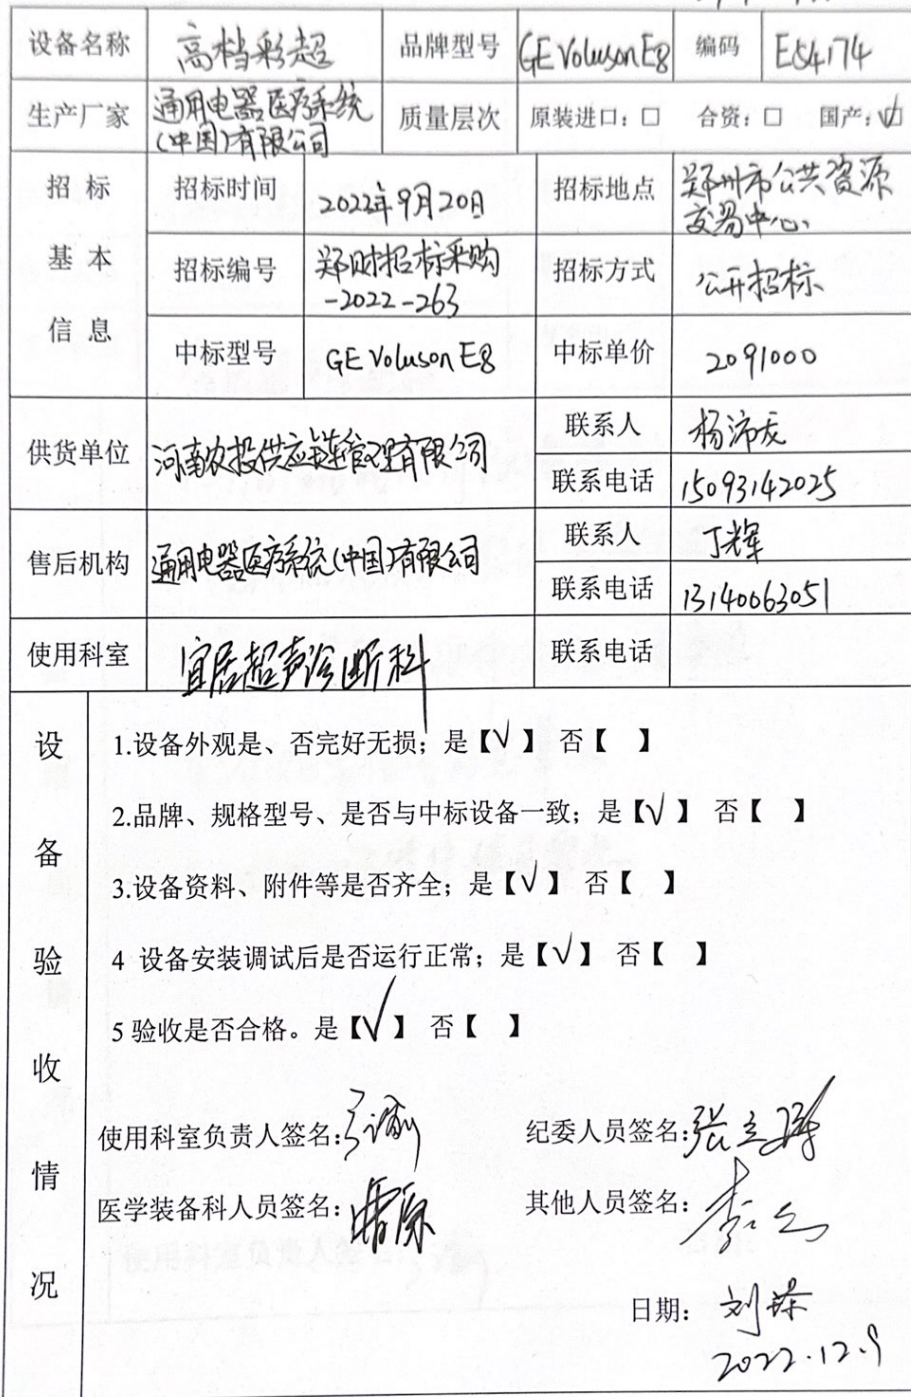 设备名称 高档彩超 品牌型号 GE Voluson E8 编码 E84174
生产厂家 通用电器医疗系统
(中国)有限公司 质量层次 原装进口：□ 合资：□ 国产：☑
招标 招标时间 2022年9月20日 招标地点 郑州市公共资源
交易中心
基本 招标编号 郑财招标采购
-2022-263 招标方式 公开招标
信息 中标型号 GE Voluson E8 中标单价 2091000
供货单位 河南农投供应链管理有限公司 联系人 杨沛龙
联系电话 15093142025
售后机构 通用电器医疗系统(中国)有限公司 联系人 丁辉
联系电话 13140063051
使用科室 宜居超声诊断科 联系电话
设备验收情况
1.设备外观是、否完好无损；是【√】 否【 】
2.品牌、规格型号、是否与中标设备一致；是【√】 否【 】
3.设备资料、附件等是否齐全；是【√】 否【 】
4 设备安装调试后是否运行正常；是【√】 否【 】
5 验收是否合格。是【√】 否【 】
使用科室负责人签名： 纪委人员签名：张
医学装备科人员签名： 其他人员签名：李
日期： 刘
2022.12.9